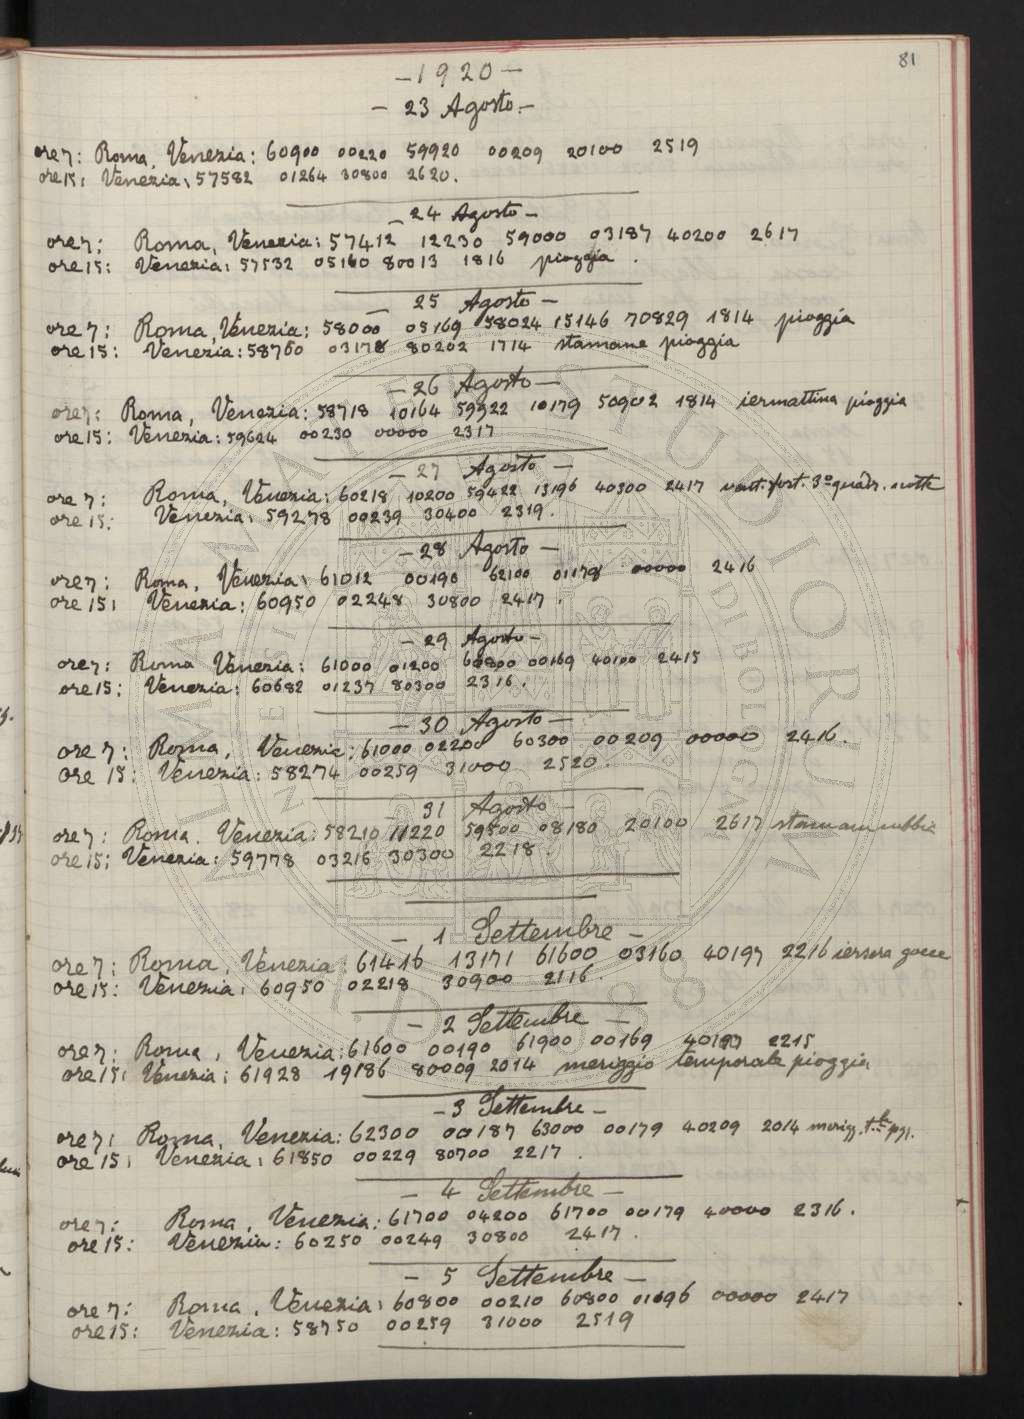 81
- 1920 -
- 23 Agosto. -
ore 7: Roma, Venezia: 60900 00220 59920 00209 20100 2519
ore 15: Venezia: 57582 01264 30800 2620.
- 24 Agosto -
ore 7: Roma, Venezia: 57412 12230 59000 03187 40200 2617
ore 15: Venezia: 57532 05160 80013 1816 pioggia.
- 25 Agosto -
ore 7: Roma, Venezia: 58000 05169 58024 15146 70829 1814 pioggia
ore 15: Venezia: 58760 03178 80202 1714 stamane pioggia
- 26 Agosto -
ore 7: Roma, Venezia: 58718 10164 59922 10179 50902 1814 iermattina pioggia
ore 15: Venezia: 59624 00230 00000 2317
- 27 Agosto -
ore 7: Roma, Venezia: 60218 10200 59422 13196 40300 2417 vent. fort. 3º quadr. notte
ore 15: Venezia: 59278 00239 30400 2319.
- 28 Agosto -
ore 7: Roma, Venezia: 61012 00190 62100 01178 00000 2416
ore 15: Venezia: 60950 02248 30800 2417.
- 29 Agosto -
ore 7: Roma Venezia: 61000 01200 60800 00169 40100 2415
ore 15: Venezia: 60682 01237 80300 2316.
- 30 Agosto -
ore 7: Roma, Venezia: 61000 02200 60300 00209 00000 2416.
ore 15: Venezia: 58274 00259 31000 2520.
- 31 Agosto -
ore 7: Roma. Venezia: 58210 11220 59500 08180 20100 2617 stamani nebbia
ore 15: Venezia: 59778 03216 30300 2218
- 1 Settembre -
ore 7: Roma, Venezia: 61416 13171 61600 03160 40197 2216 iersera gocce
ore 15: Venezia: 60950 02218 30900 2116.
- 2 Settembre -
ore 7: Roma, Venezia: 61600 00190 61900 00169 2215
ore 15: Venezia: 61928 19186 80009 2014 meriggio temporale pioggia
- 3 Settembre -
ore 7: Roma, Venezia: 62300 00187 63000 00179 40209 2014 merigg.
ore 15: Venezia: 61850 00229 80700 2217.
- 4 Settembre -
ore 7: Roma, Venezia: 61700 04200 61700 00179 40000 2316.
ore 15: Venezia: 60250 00249 30800 2417.
- 5 Settembre -
ore 7: Roma, Venezia: 60800 00210 60800 01096 00000 2417
ore 15: Venezia: 58750 00259 31000 2519
ALMA MATER STUDIORUM
UNIVERSITÀ DI BOLOGNA